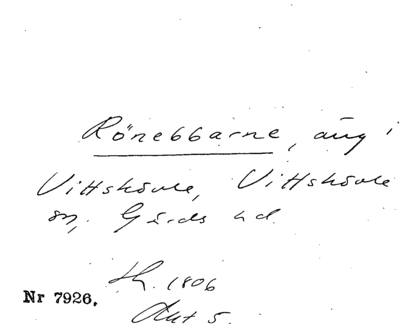 Rönebbarne, äng i
Vittskövle, Vittskövle
sn, Gärds hd.
Sk. 1806
Akt 5.
Nr 7926.